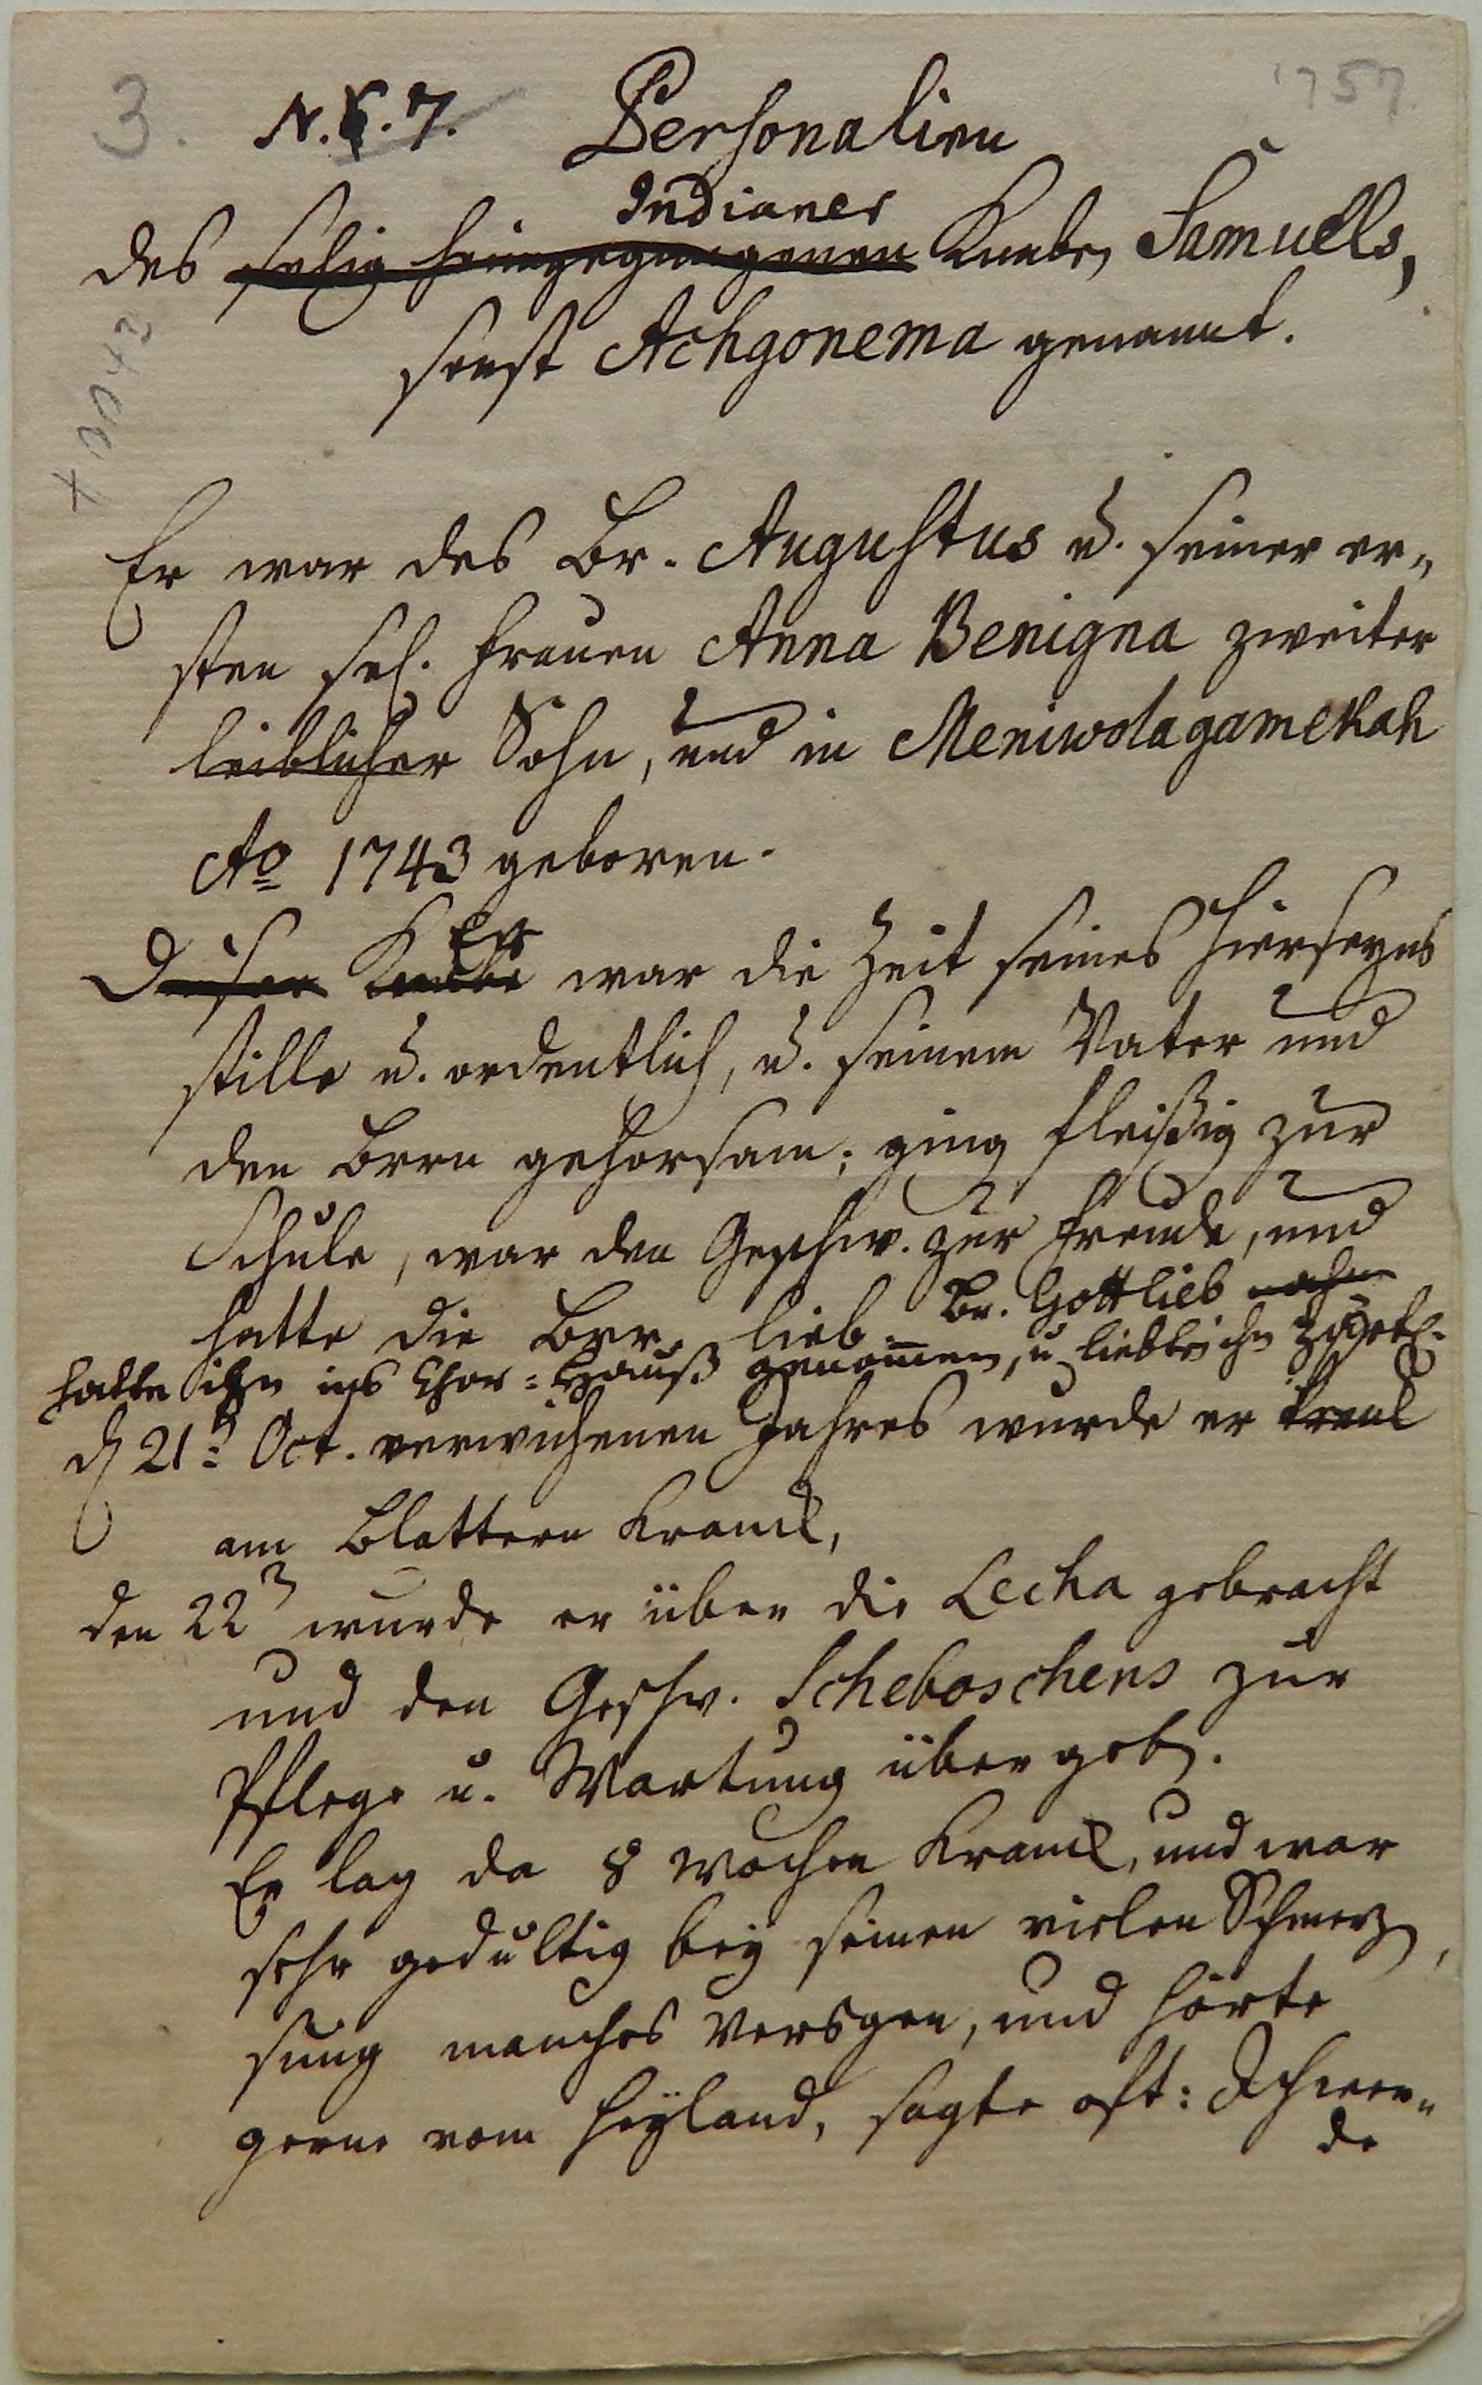 3. N. 6. 7. Personalien 1757
Indianer
des selig heimgegangenen Knaben Samuels,
sonst Achgonema genannt.
Er war des Br. Augustus u. seiner er„
sten sel. Frauen Anna Benigna zweiter
leiblicher Sohn, und in Meniwolagamekah
Ao 1743 geboren.
Er
Dieser Knabe war die Zeit seines Hierseyns
stille u. ordentlich, u. seinem Vater und
den Brrn gehorsam; ging fleißig zur
Schule, war den Geschw. zur Freude, und
hatte die Brr. lieb. Br. Gottlieb nahm
hatte ihn ins Chor=Hauß genomen, u
d 21t Oct. verwichenen Jahres wurde er krank
am Blattern Kranck,
den 22 wurde er über die Lecha gebracht
und den Geschw. Scheboschens zur
Pflege u. Wartung übergeb.
Er lag da 8 Wochen Kranck, und war
sehr gedultig bey seinen vielen Schmerz,
sung manches Versgen, und hörte
gerne vom Heyland, sagte oft: Ich wer„
de